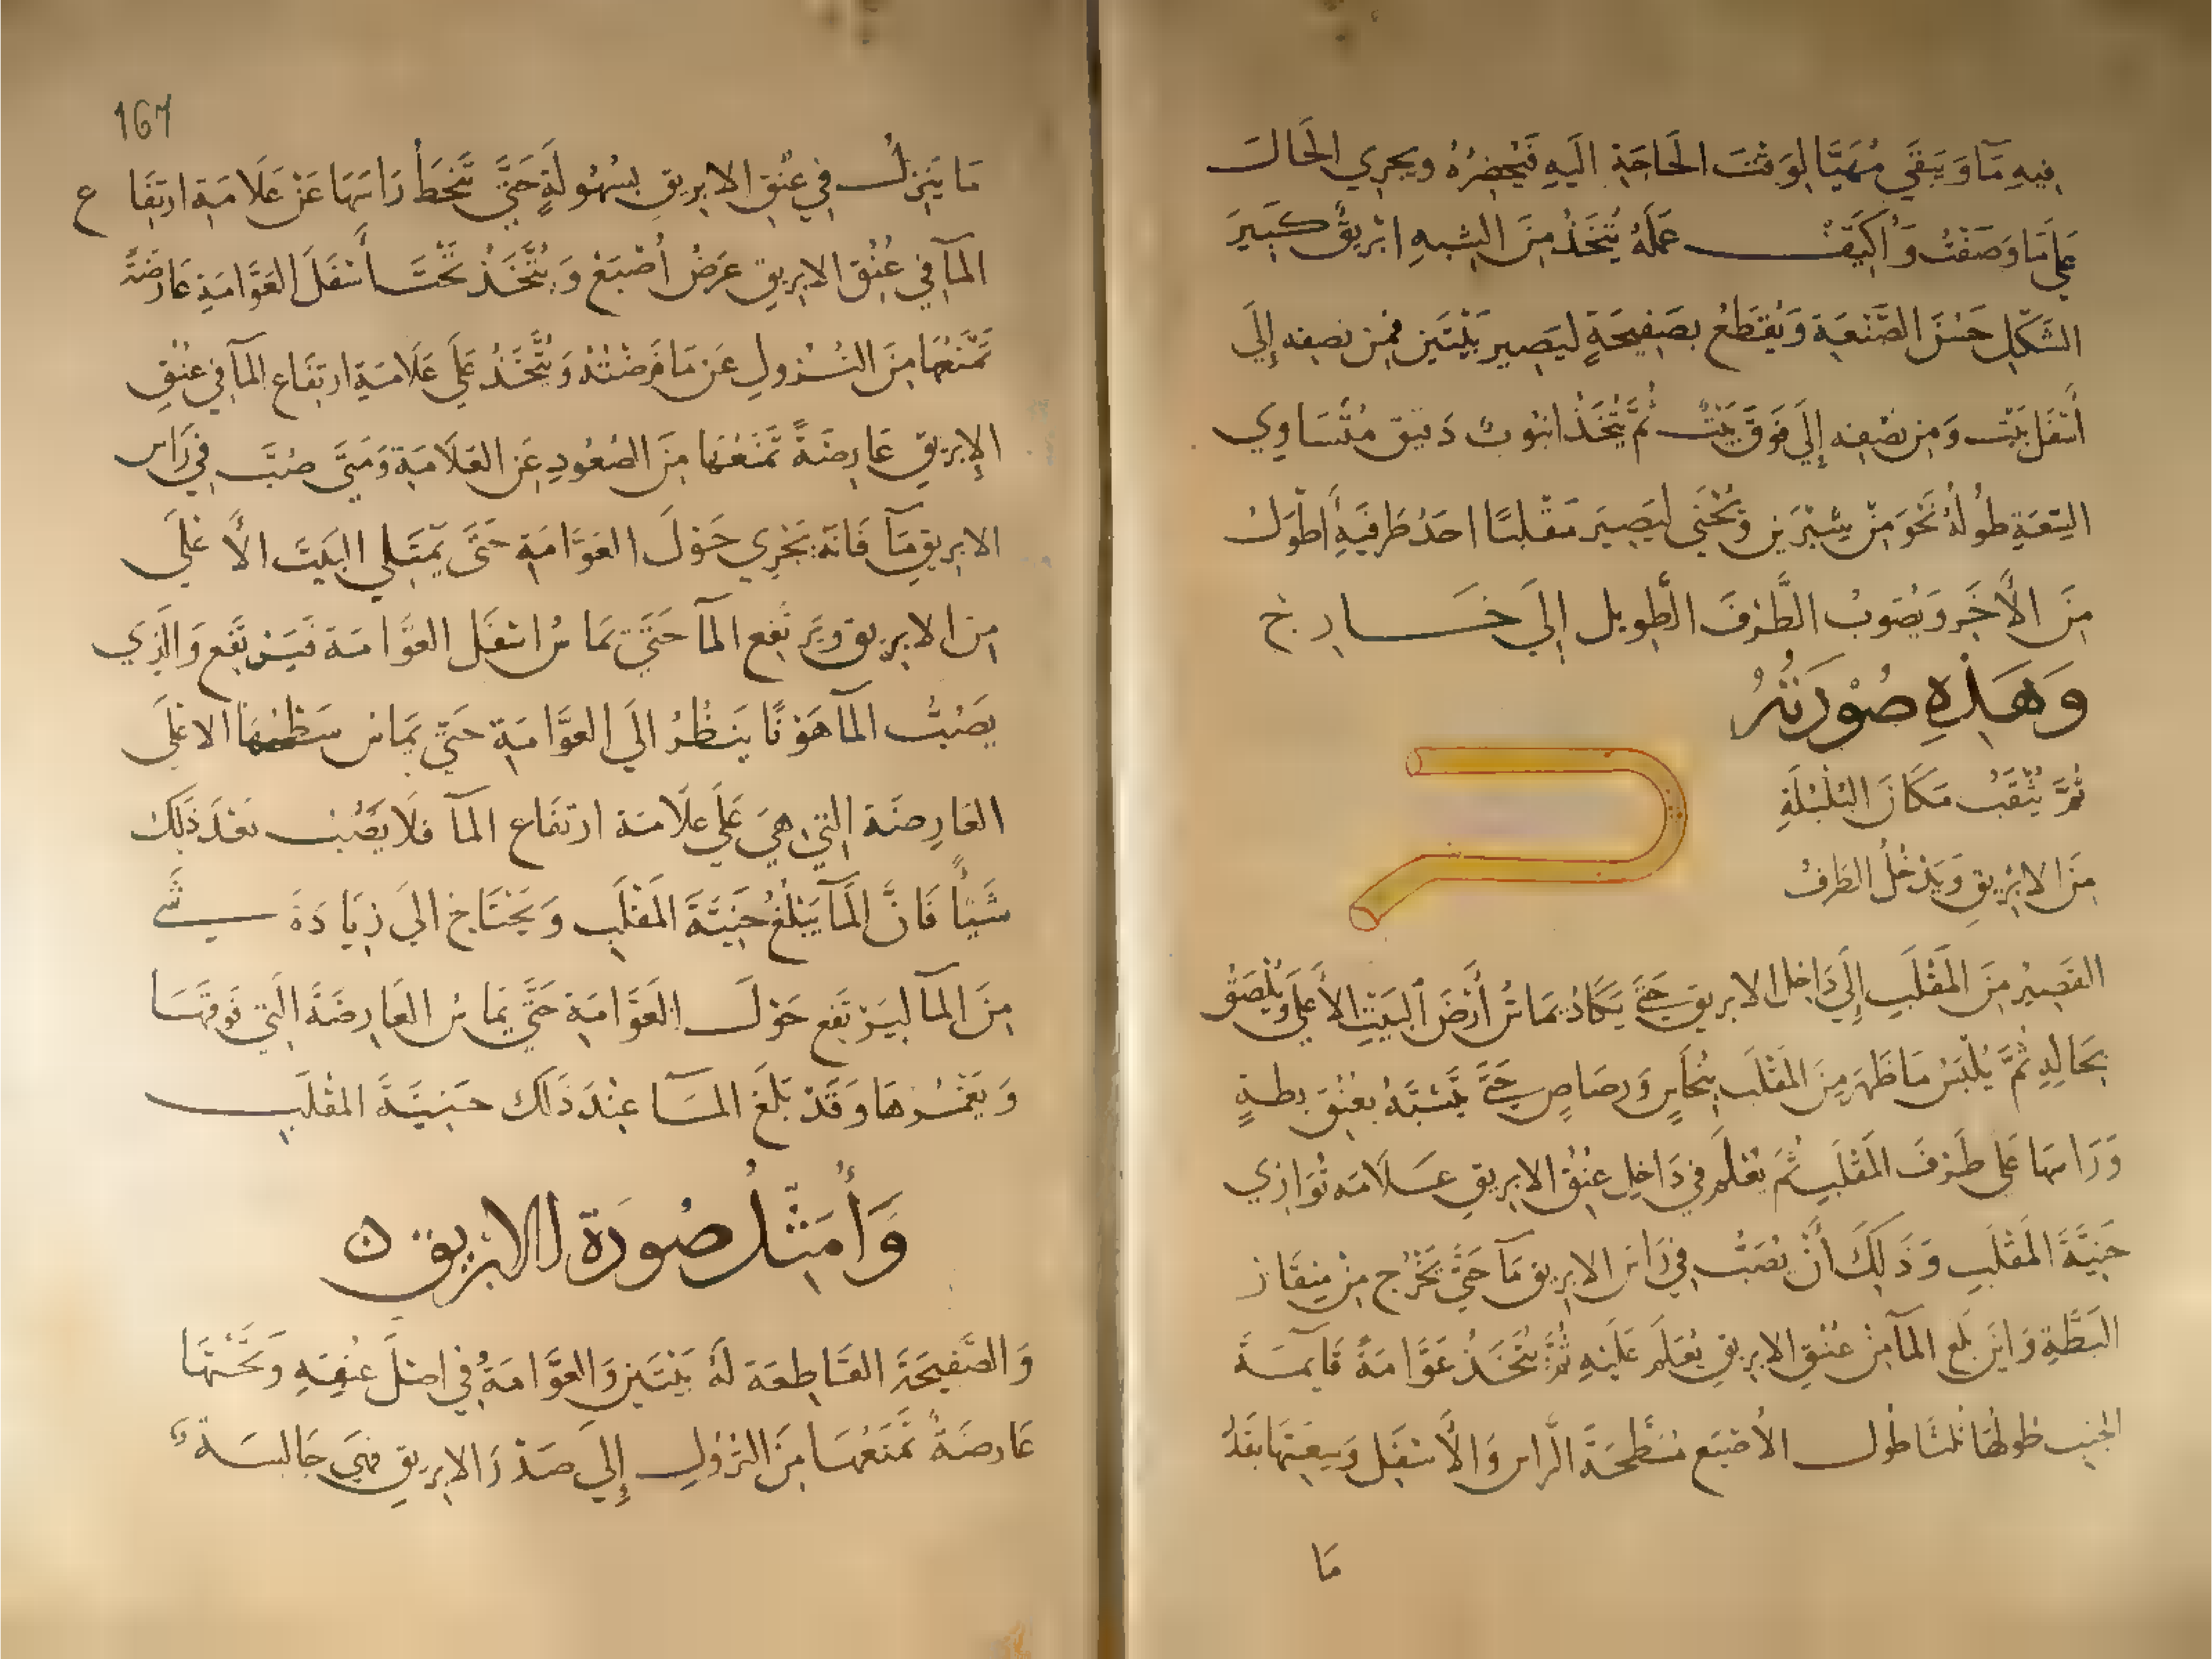 فِيهِ مَآ وَيَبقَي مُهَيَّا لِوَقتَ الحَاجَةِ الَيهِ فَيُحضِرُهُ ويجري الحَالَ
عَلي مَا وَصَفْتُ وَاكَيِّفُ عَمَلَهُ يُتَّخَذُ مِنَ الشِبهِ ابْريقٌ كَبِيرَ
الشَكلِ حَسَنَ الصَّنْعَةِ وَيُقطَعُ بصَفِيحَةٍ ليَصِير بَيْتَين فمِن نصِفه إلَي
أسْفَل بَيْت وَمِن نصْفِه إلَي فَوقَ بَيْتٌ ثُمَّ يُتَّخَذُ انبُوبٌ دَقيق مُتَسَاوِي
السِّعَةِ طُولُهُ نَحوَ مِنْ شِبْرَين وَيُحْني ليَصِيَر مَقْلبًا احَدُ طَرفَيهِ أَطْوَلُ
مِنَ الأَخَر وَيُصَوبُ الطَّرْفَ الطَّويل إلَي خَارِج
وَهَذِهِ صُوْرَتُهُ
ثُمَّ يُثْقَبُ مَكَانَ البُلْبُلَةِ
مِنَ الابْرِيقِ وَيَدْخُلُ الطَرفُ
القَصِيُر مِنَ المَقْلَبِ إلَي دَاخِل الابريق حَتَّي يَكَادُ يمَاسُّ أرْضَ البَيْتِ الأَعْلَي وَيُلْصَقُ
بحَالِهِ ثُمَّ يُلْبَسُ مَا ظَهَرَ مِنَ المَقْلَب بنُحَاسٍ وَرصَاصٍ حَتَّي يَتَشَبَّهُ بعُنْقِ بطةٍ
وَرَاسِهَا عَلي طَرَفَ المَقْلَبِ ثُمَّ يُعْلَمُ في دَاخِلِ عُنْقِ الابريقِ عَلامَه تُوَازِي
حَنِيَّةَ المَقْلَبِ وَذَلِكَ أنْ يُصَبَّ فِي رَاسِ الابريقِ مَآ حَتَّي يَخْرُج مِنْ مِنقَار
البَطَّةِ وَايَن بَلَغ المَآ مِنْ عُنْقِ الابريقِ يُعَلَم عَلَيْهِ ثُمَّ يُتَّخَذُ عَوَّامَةً قَايمَةَ
الجَنبِ طولُهَا ثُلثَا طُول الأصْبَع مُسَطَّحَةَ الرَّاسِ وَالأَسْفَل وَسِعَتُهَا بقَدْرِ
مَا
167
مَا يَنزلُ في عُنْقِ الابريقِ بسُهُولَةٍ حَتَّي يَنْحَطُ رَاسُهَا عَنْ عَلَامَةِ ارتِفَاع
المآ في عُنْق الابريقِ عَرضَ أُصْبَعْ وَيُتَّخَذُ تَحْتَ أسْفَلَ العَوَّامَةِ عَارضَةً
تَمْنَعُهَا مِنَ النُزولِ عَن مَا فَرضْتُهُ وَيُتَّخَذُ عَلَي عَلَامَةِ ارتِفَاعِ المآ في عُنْقِ
الإبريقِ عَارِضَةً تَمْنَعُهَا مِنَ الصُعُودِ عَنِ العَلَامَةِ وَمَتَي صُبَّ فِي رَاسِ
الابريق مَآ فَانَهُ يَجْري حَوْلَ العَوَّامَةِ حَتَّى يَمْتَلِي البَيْتَ الأَعْلَي
مِنَ الابريق ويَرتَفِع المآ حَتَّي يَمَاسَّ اسْفَل العوَّامَة فَيَرتَفِع وَالَذِي
يَصُبُّ المآ هَوْنًا يَنظُرُ الَي العَوَّامَةِ حَتَّي يمَاس سَطْحُهَا الاعْلَي
العَارِضَة التي هِيَ عَلَي عَلَامَة ارتِفَاع المآ فلَا يَصُبُّ بَعْدَ ذَلِكَ
شَيئًا فَانَّ المَآ يَبْلُغُ حَنِيَّةَ المَقْلَبِ وَيَحْتَاج الَي زِيَادَةَ شَي
مِنَ المآ ليَرْتَفِع حَوْلَ العَوَّامَةِ حَتَّي يَمَاسَّ العَارِضَةَ الَتِي فَوقَهَا
وَيَغْمُرهَا وَقَدْ بَلَغَ المآ عِنْدَ ذَلَكَ حَنِيَّةَ المَقْلَبِ
وَأُمَثّلُ صُورَة الابْريق ن
وَالصَّفِيحَةَ القَاطِعَة لَهُ بَيْتَيَنِ وَالعَوَّامَةُ في اصْلَ عُنقِهِ وَتَحْتَهَا
عَارضَةٌ تَمْنَعُهَا مِنَ النزُولِ إلَي صَدْرَ الابريقِ فهِيَ جَالسَة